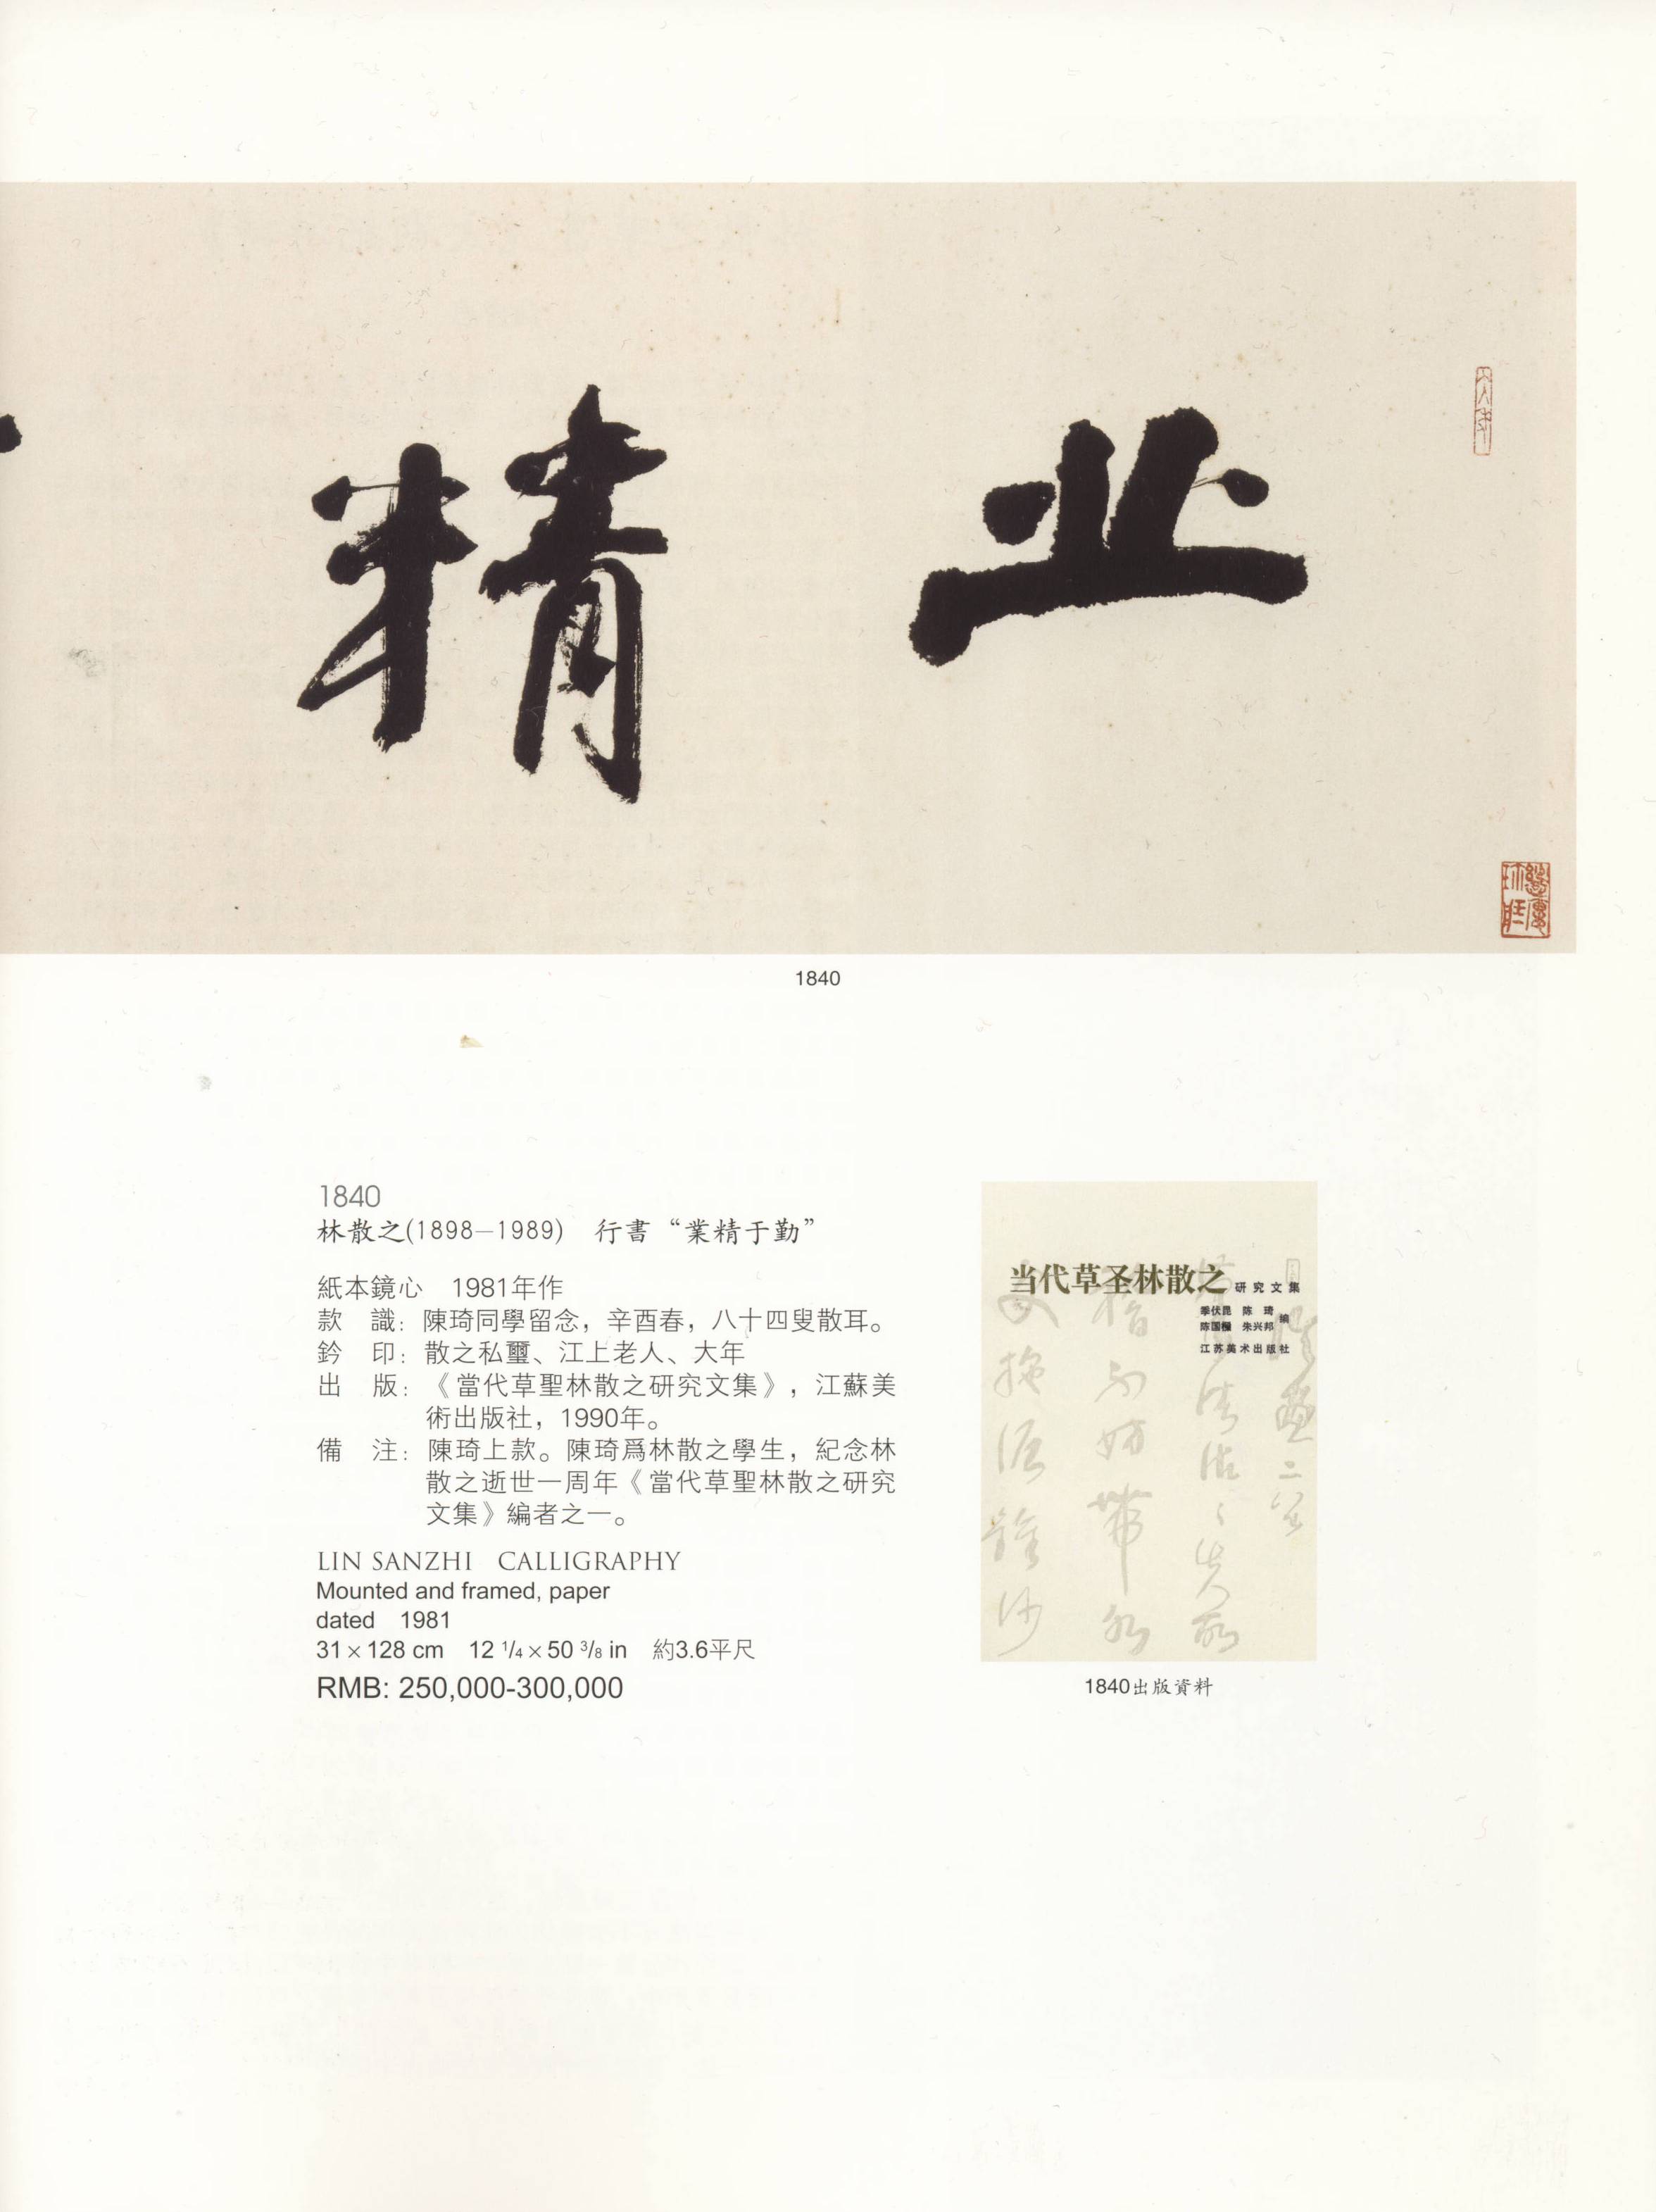 业 精
1840
1840
林散之(1898—1989)　行書“業精于勤”
紙本鏡心　1981年作
款　識：陳琦同學留念，辛酉春，八十四叟散耳。
鈐　印：散之私璽、江上老人、大年
出　版：《當代草聖林散之研究文集》，江蘇美
術出版社，1990年。
備　注：陳琦上款。陳琦爲林散之學生，紀念林
散之逝世一周年《當代草聖林散之研究
文集》編者之一。
LIN SANZHI　CALLIGRAPHY
Mounted and framed, paper
dated　1981
31×128 cm　12 1/4×50 3/8 in　約3.6平尺
RMB: 250,000-300,000
当代草圣林散之 研究文集
季伏昆　陈　琦
陈国欢　朱兴邦　编
江苏美术出版社
1840出版資料